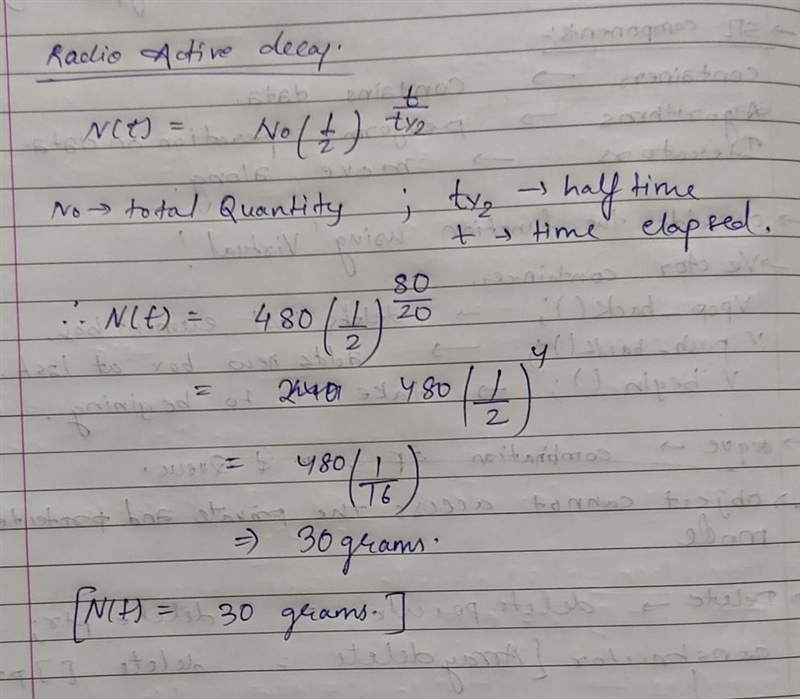 Radio Active decay.
N(t) = No(1/2)^(t/t1/2)
No → total Quantity ; t1/2 → half time
t → time elapsed.
∴ N(t) = 480(1/2)^(80/20)
= 480(1/2)^4
= 480(1/16)
⇒ 30 grams.
[N(t) = 30 grams.]